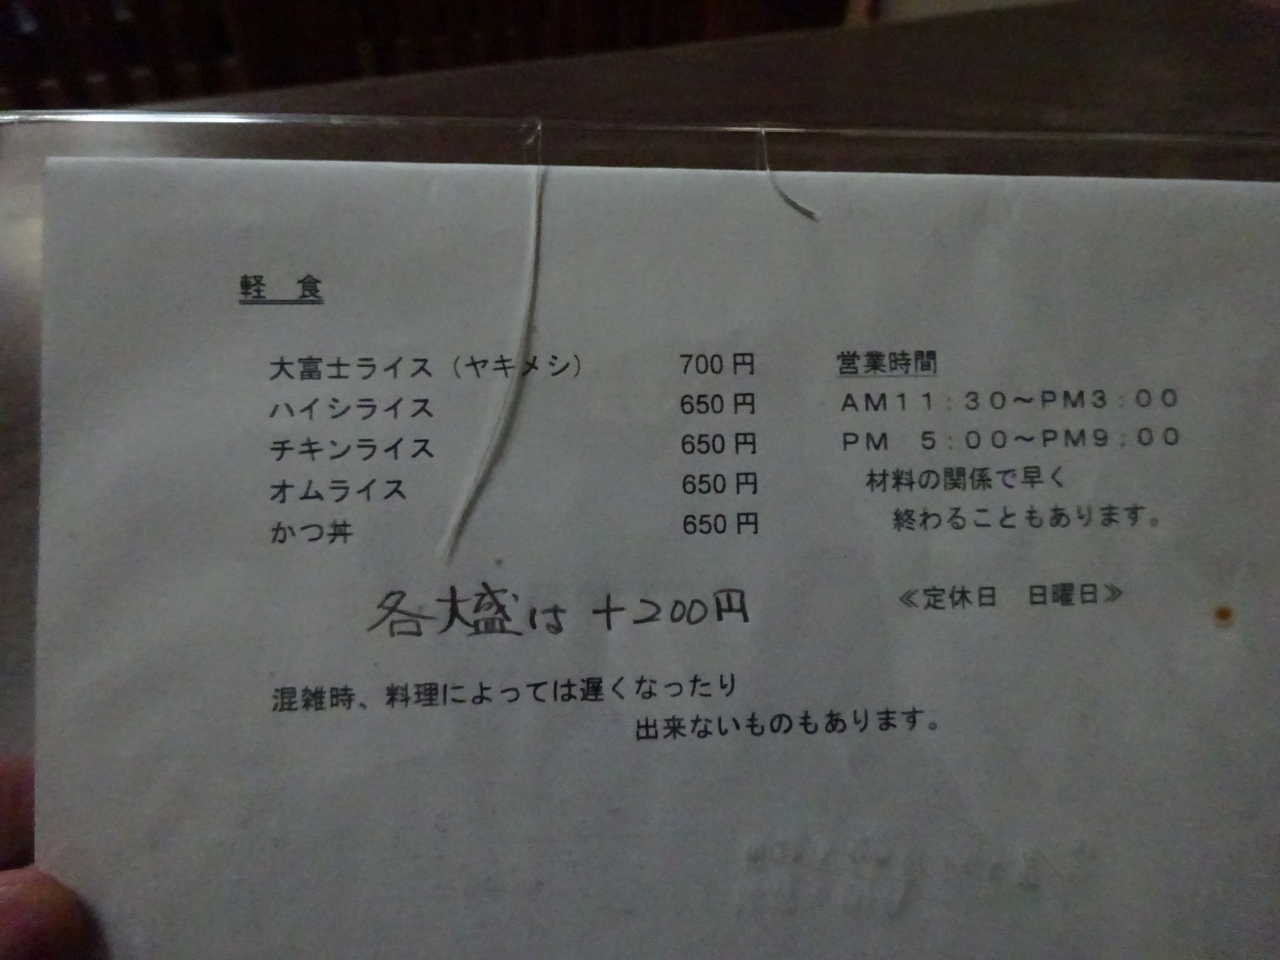 軽　食
大富士ライス（ヤキメシ）　700円
ハイシライス　650円
チキンライス　650円
オムライス　650円
かつ丼　650円
各大盛は ＋200円
混雑時、料理によっては遅くなったり
出来ないものもあります。
営業時間
ＡＭ１１：３０～ＰＭ３：００
ＰＭ　５：００～ＰＭ９：００
材料の関係で早く
終わることもあります。
≪定休日　日曜日≫